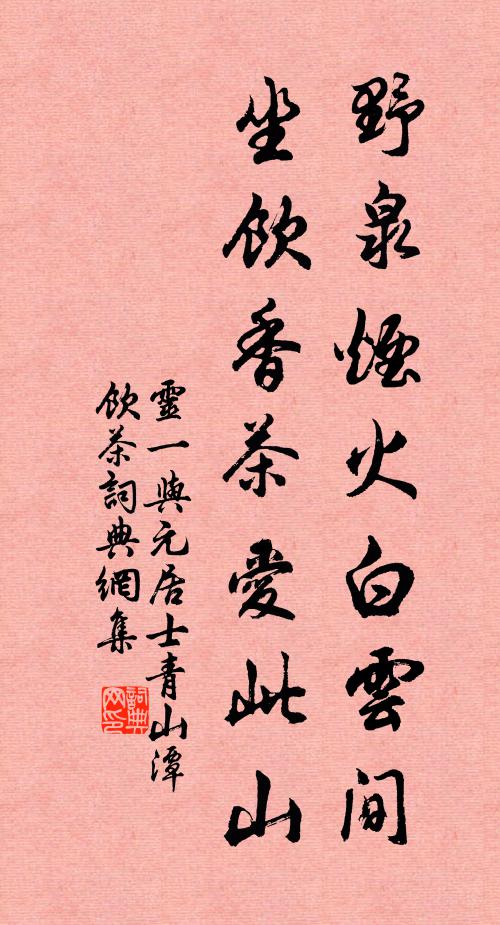 野泉煙火白雲間
坐飲香茶愛此山
靈一與元居士青山潭
飲茶詞典網集
詞典网印